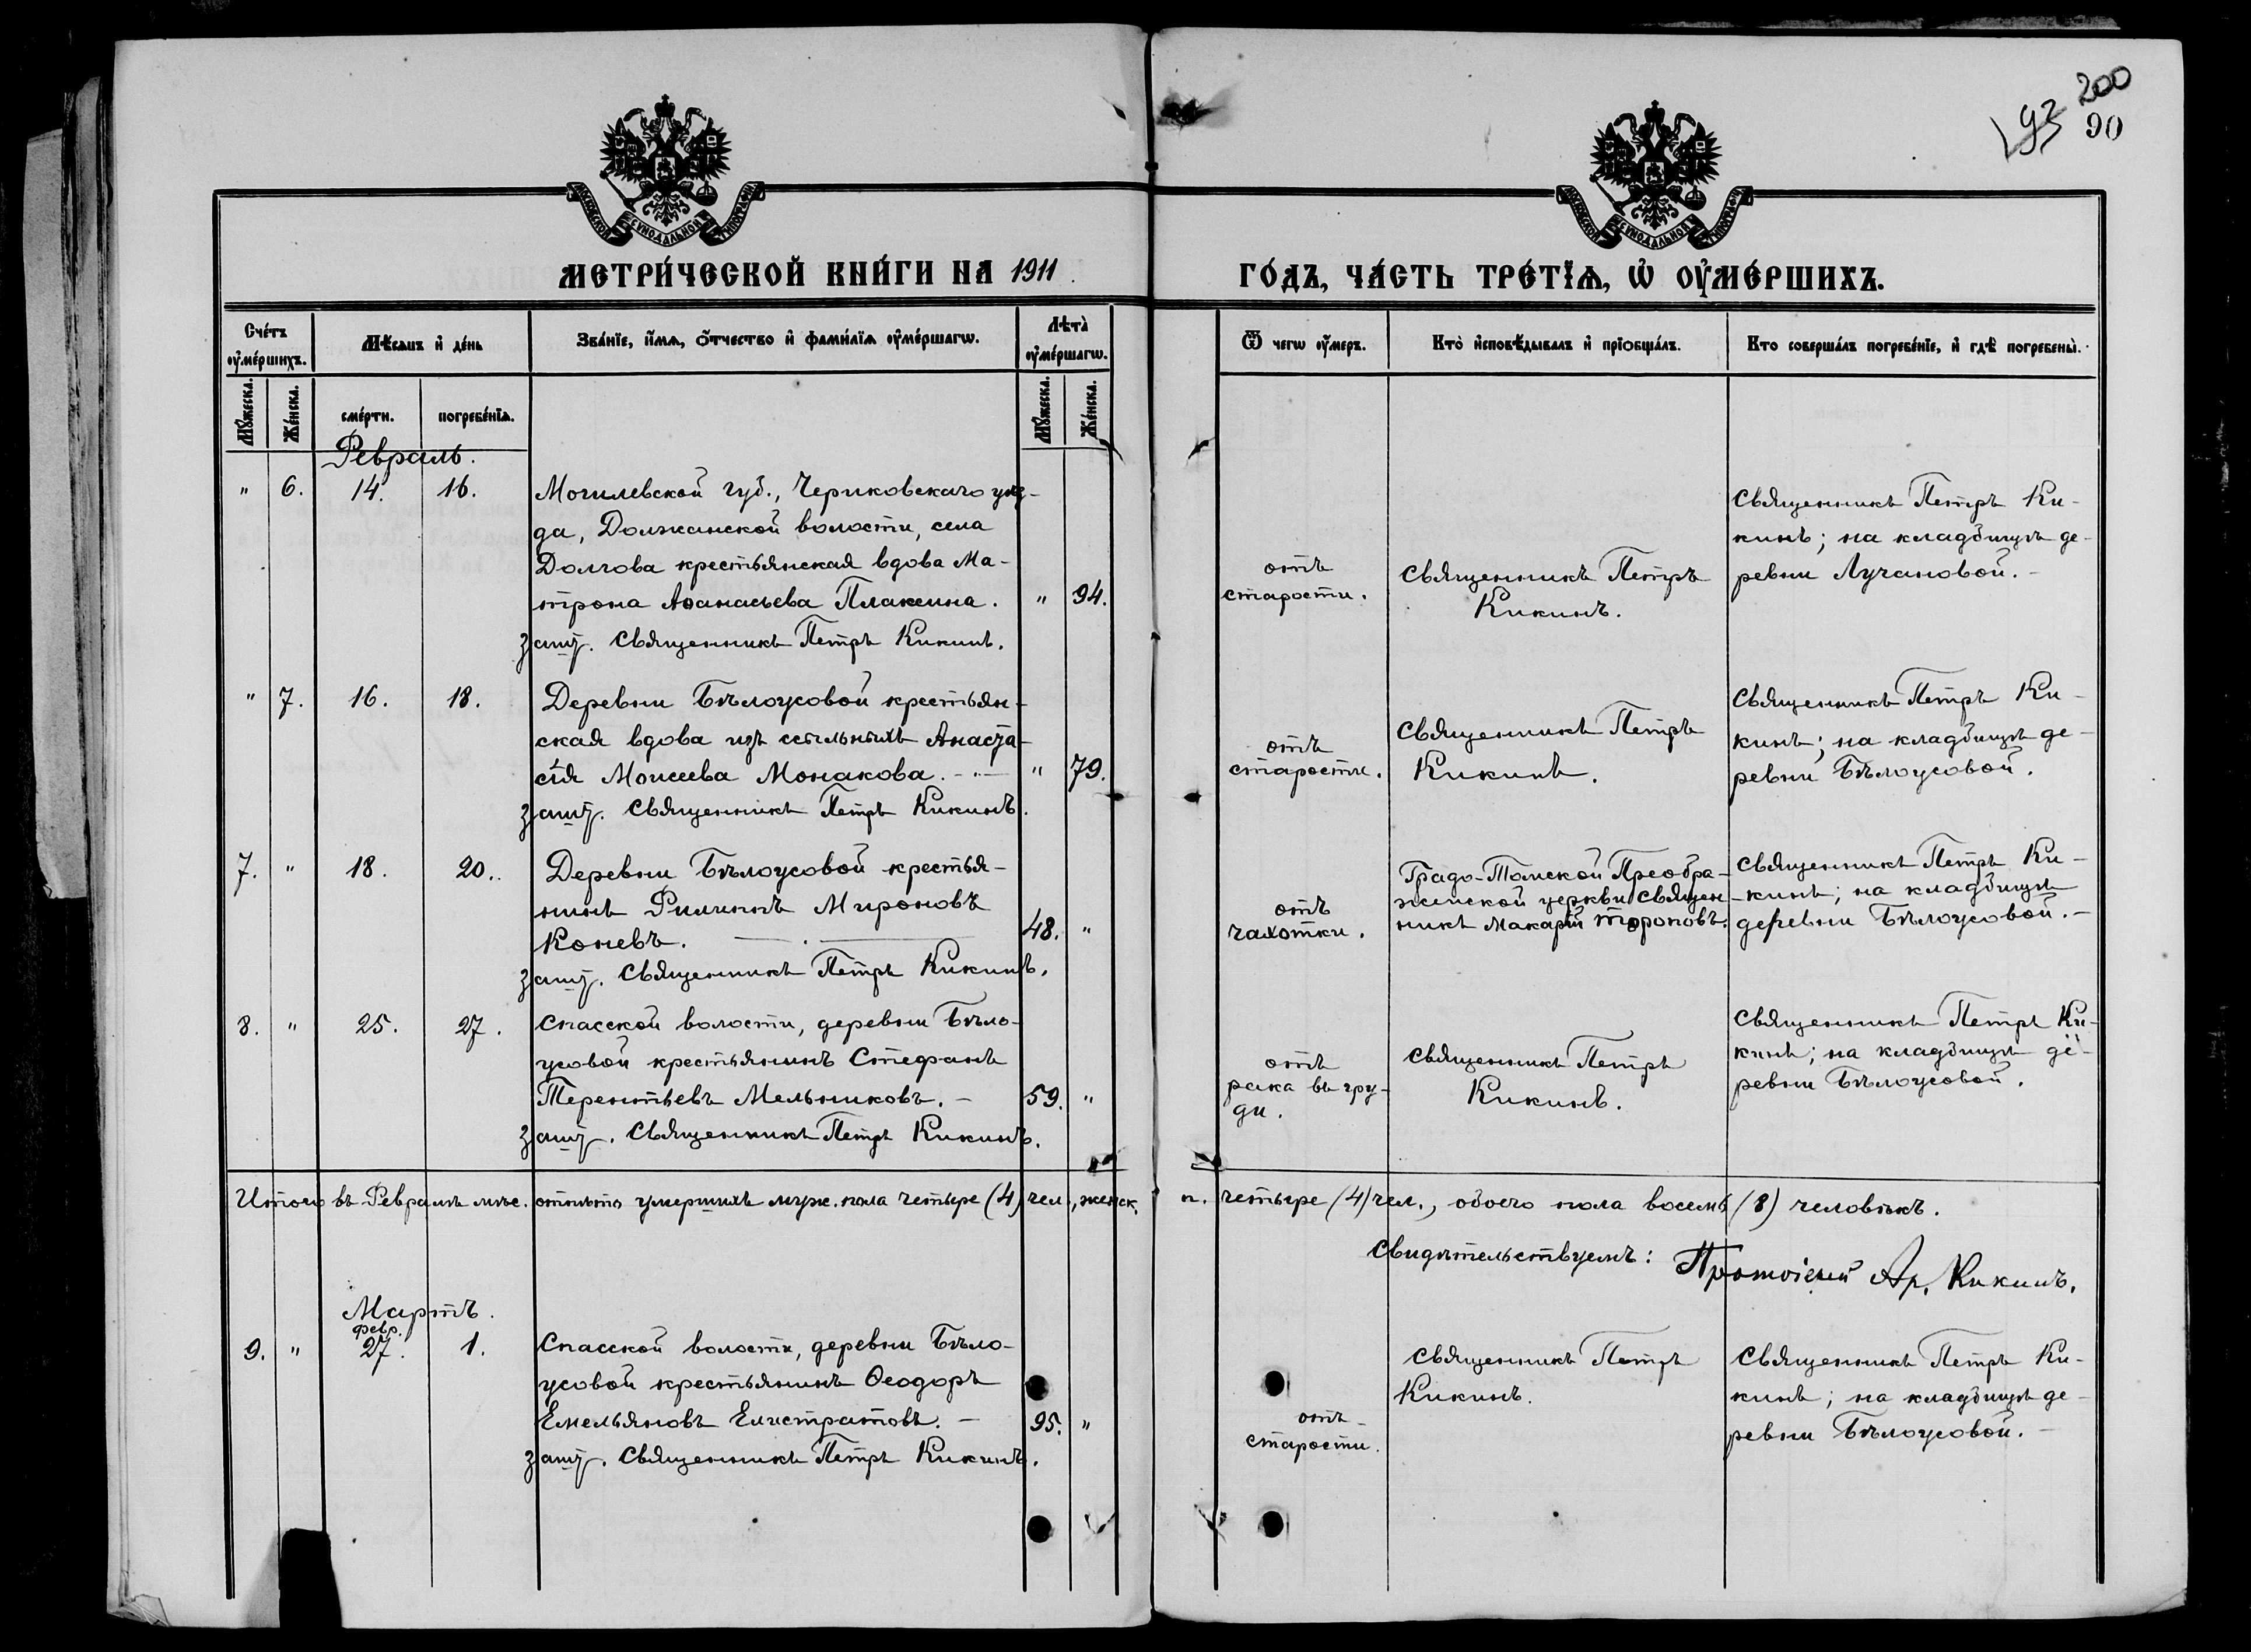 200
193 90
МОСКОВСКОЙ СѴНОДАЛЬНОЙ ТИПОГРАФІИ
МОСКОВСКОЙ СѴНОДАЛЬНОЙ ТИПОГРАФІИ
МЕТРИ́ЧЕСКОЙ КНИ́ГИ НА 1911
ГО́ДЪ, ЧА́СТЬ ТРЕ́ТЇѦ, Ѡ҆ ОУ҆МЕ́РШИХЪ.
Сче́тъ оу҆ме́ршихъ.
Мѣ́сѧцъ и҆ де́нь
Зва́нїе, и҆́мѧ, о҆́тчество и҆ фами́лїѧ оу҆ме́ршагѡ.
Лѣта̀ оу҆ме́ршагѡ.
Ѿ чегѡ оу҆́меръ.
Кто̀ и҆сповѣ́дывалъ и҆ прїѻбща́лъ.
Кто соверша́лъ погребе́нїе, и҆ гдѣ̀ погребены̀.
Мꙋ́жеска. Же́нска. сме́рти. погребе́нїѧ. Мꙋ́жеска. Же́нска.
Февраль.
" 6. 14. 16.
Могилевской губ., Чериковскаго уѣз-
да, Должанской волости, села
Долгова крестьянская вдова Ма-
трона Аѳанасьева Плаксина. " 94.
Священникъ Петръ Кикинъ.
отъ
старости.
Священникъ Петръ
Кикинъ.
Священникъ Петръ Ки-
кинъ; на кладбищѣ де-
ревни Лучановой. -
" 7. 16. 18.
Деревни Бѣлоусовой крестьян-
ская вдова изъ ссыльныхъ Анаста-
сія Моисеева Монакова. - " 79.
Священникъ Петръ Кикинъ.
отъ
старости.
Священникъ Петръ
Кикинъ.
Священникъ Петръ Ки-
кинъ; на кладбищѣ де-
ревни Бѣлоусовой.
7. " 18. 20.
Деревни Бѣлоусовой крестья-
нинъ Филиппъ Мироновъ
Коневъ. — 48. "
Священникъ Петръ Кикинъ.
отъ
чахотки.
Градо-Томской Преобра-
женской церкви Священ-
никъ Макарій Тороповъ.
Священникъ Петръ Ки-
кинъ; на кладбищѣ
деревни Бѣлоусовой. -
8. " 25. 27.
Спасской волости, деревни Бѣло-
усовой крестьянинъ Стефанъ
Терентьевъ Мельниковъ. - 59. "
Священникъ Петръ Кикинъ.
отъ
рака въ гру-
ди.
Священникъ Петръ
Кикинъ.
Священникъ Петръ Ки-
кинъ; на кладбищѣ де-
ревни Бѣлоусовой.
Итого въ Февралѣ мѣс. отпѣто умершихъ муж. пола четыре (4) чел., женск. п. четыре (4) чел., обоего пола восемь (8) человѣкъ.
Свидѣтельствуемъ: Протоіерей Ар. Кикинъ.
Мартъ.
февр.
9. " 27. 1.
Спасской волости, деревни Бѣло-
усовой крестьянинъ Ѳеодоръ
Емельяновъ Елистратовъ. - 95. "
Священникъ Петръ Кикинъ.
отъ
старости.
Священникъ Петръ
Кикинъ.
Священникъ Петръ Ки-
кинъ; на кладбищѣ де-
ревни Бѣлоусовой. -